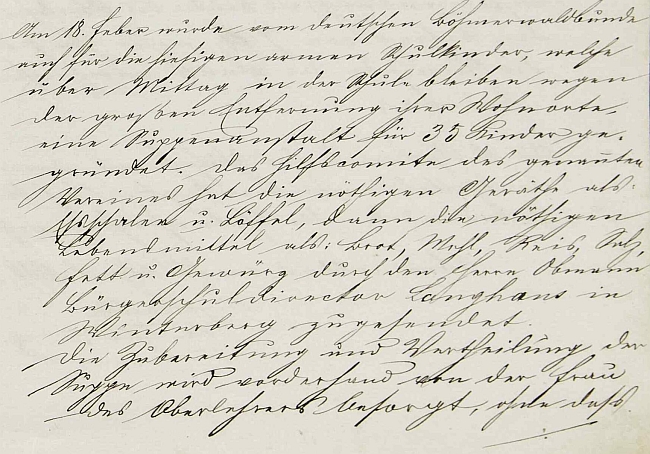 Am 18. Feber wurde vom deutschen Böhmerwaldbunde
auch für die hiesigen armen Schulkinder, welche
über Mittag in der Schule bleiben wegen
der großen Entfernung ihrer Wohnorte,
eine Suppenanstalt für 35 Kinder ge-
gründet. Das Hilfscomite des genannten
Vereines hat die nöthigen Geräthe als:
Eßschalen u. Löffel, dann die nöthigen
Lebensmittel als: Brot, Mehl, Reis, Salz,
Fett u. Gewürz durch den Herrn Obmann
Bürgerschuldirector Langhans in
Winterberg zugesendet.
Die Zubereitung und Vertheilung der
Suppe wird vorderhand von der Frau
des Oberlehrers besorgt, ohne dass